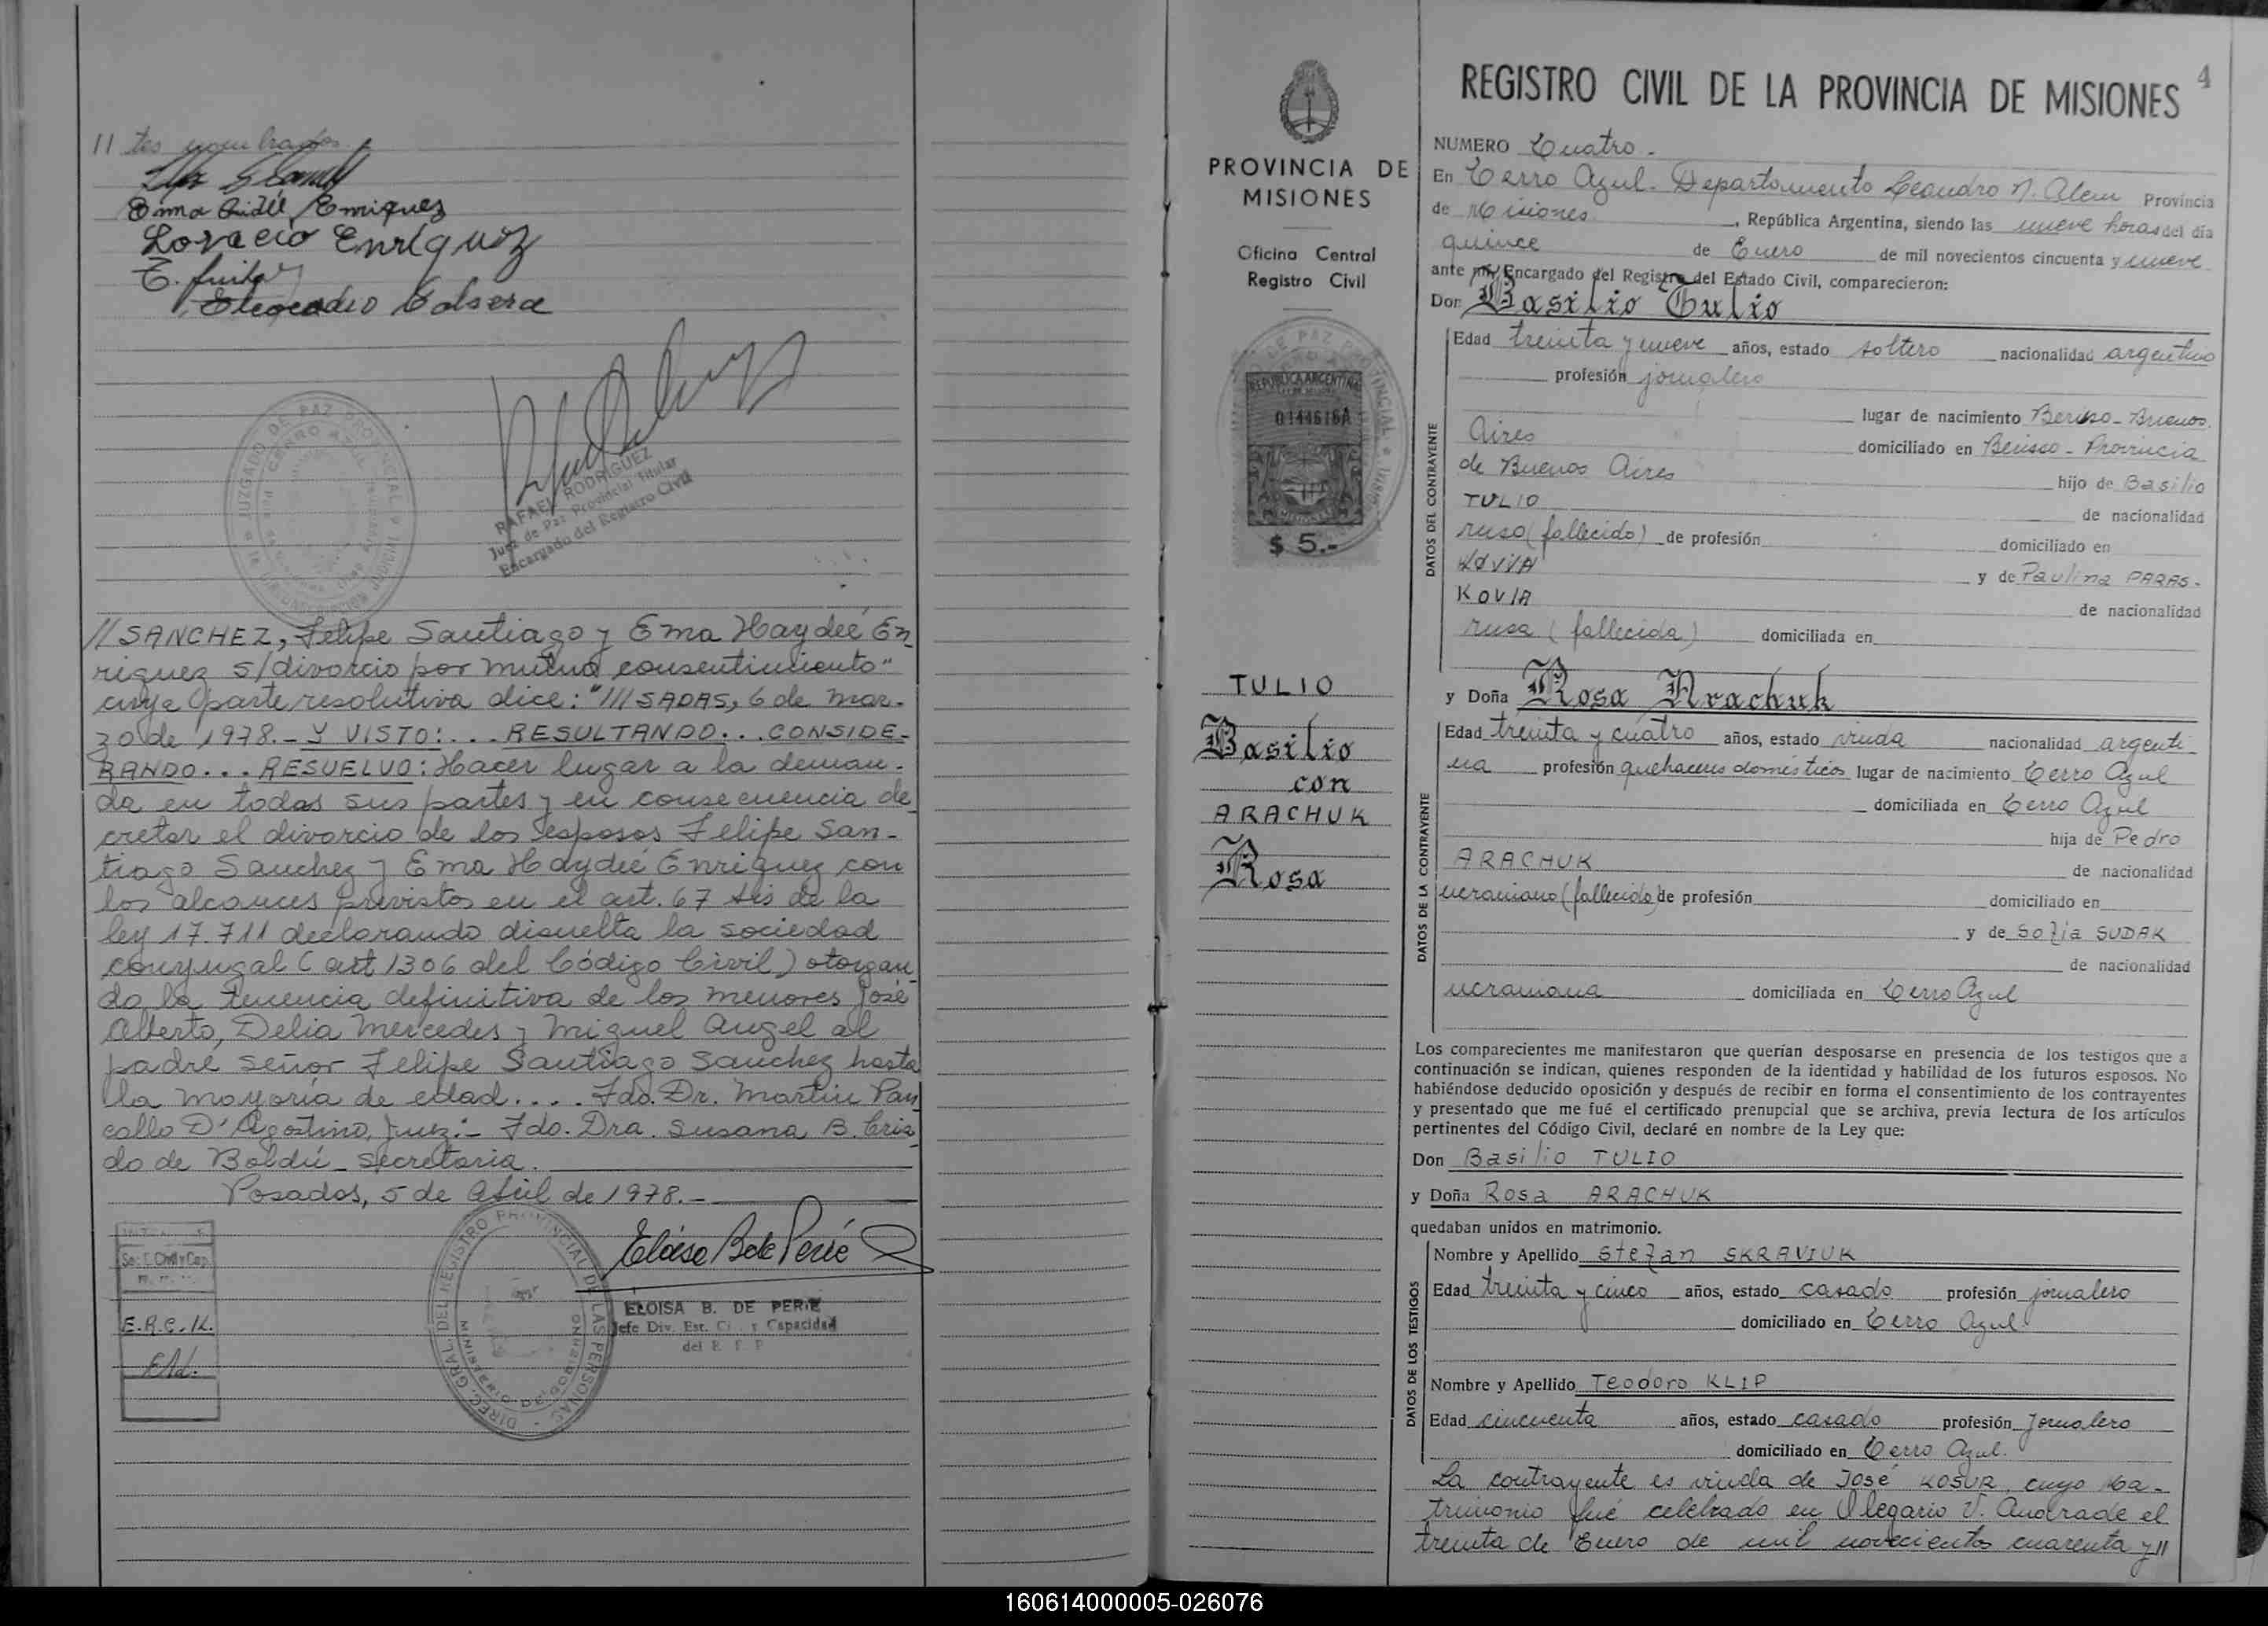 // tes nombrados.
Ema Aidée Enriquez
Loracio Enriquez
Eleocadio Cabrera
JUZGADO DE PAZ PROVINCIAL
CERRO AZUL
RAFAEL RODRIGUEZ
Juez de Paz Provincial Titular
Encargado del Registro Civil
//SANCHEZ, Felipe Santiago y Ema Haydeé En-
riquez s/divorcio por mutuo consentimiento"
cuya parte resolutiva dice: "///SADAS, 6 de mar-
zo de 1978.- Y VISTO:... RESULTANDO... CONSIDE-
RANDO... RESUELVO: Hacer lugar a la deman-
da en todas sus partes y en consecuencia de
cretar el divorcio de los esposos Felipe San-
tiago Sanchez y Ema Haydée Enriquez con
los alcances previstos en el art. 67 bis de la
ley 17.711 declarando disuelta la sociedad
conyugal (art 1306 del Código Civil) otorgan
do la tenencia definitiva de los menores José
Alberto, Delia Mercedes y Miguel Angel al
padre señor Felipe Santiago Sanchez hasta
la mayoría de edad.... Fdo. Dr. Martin Pan
collo D'Agostino, Juez.- Fdo. Dra. Susana B. Cria
do de Boldú - Secretaria.
Posadas, 5 de Abril de 1978.-
Eloisa B de Perié
ELOISA B. DE PERIE
Jefe Div. Est. Ci . y Capacidad
E.R.C.K.
DIREC. GRAL. DEL REGISTRO PROVINCIAL DE LAS PERSONAS
PROVINCIA DE
MISIONES
Oficina Central
Registro Civil
REPUBLICA ARGENTINA
0144616A
$ 5.-
TULIO
Basilio
con
ARACHUK
Rosa
4
REGISTRO CIVIL DE LA PROVINCIA DE MISIONES
NUMERO Cuatro.-
En Cerro Azul. Departamento Leandro N. Alem Provincia
de Misiones, República Argentina, siendo las nueve horas del día
quince de Enero de mil novecientos cincuenta y nueve
ante mí, Encargado del Registro del Estado Civil, comparecieron:
Don Basilio Tulio
DATOS DEL CONTRAYENTE
Edad treinta y nueve años, estado soltero nacionalidad argentino
profesión jornalero
lugar de nacimiento Beriso - Buenos
Aires domiciliado en Berisso - Provincia
de Buenos Aires hijo de Basilio
TULIO de nacionalidad
ruso (fallecido) de profesión domiciliado en
KOVIA y de Paulina PARAS-
KOVIA de nacionalidad
rusa (fallecida) domiciliada en
y Doña Rosa Arachuk
DATOS DE LA CONTRAYENTE
Edad treinta y cuatro años, estado viuda nacionalidad argenti
na profesión quehaceres domésticos lugar de nacimiento Cerro Azul
domiciliada en Cerro Azul
hija de Pedro
ARACHUK de nacionalidad
ucraniano (fallecido) de profesión domiciliado en
y de Sofia SUDAK
de nacionalidad
ucraniana domiciliada en Cerro Azul
Los comparecientes me manifestaron que querían desposarse en presencia de los testigos que a
continuación se indican, quienes responden de la identidad y habilidad de los futuros esposos. No
habiéndose deducido oposición y después de recibir en forma el consentimiento de los contrayentes
y presentado que me fué el certificado prenupcial que se archiva, previa lectura de los artículos
pertinentes del Código Civil, declaré en nombre de la Ley que:
Don Basilio TULIO
y Doña Rosa ARACHUK
quedaban unidos en matrimonio.
DATOS DE LOS TESTIGOS
Nombre y Apellido Stefan SKRAVIUK
Edad treinta y cinco años, estado casado profesión jornalero
domiciliado en Cerro Azul
Nombre y Apellido Teodoro KLIP
Edad cincuenta años, estado casado profesión Jornalero
domiciliado en Cerro Azul.
La contrayente es viuda de José KOSUR, cuyo Ma-
trimonio fué celebrado en Olegario V. Andrade el
treinta de Enero de mil novecientos cuarenta y//
160614000005-026076